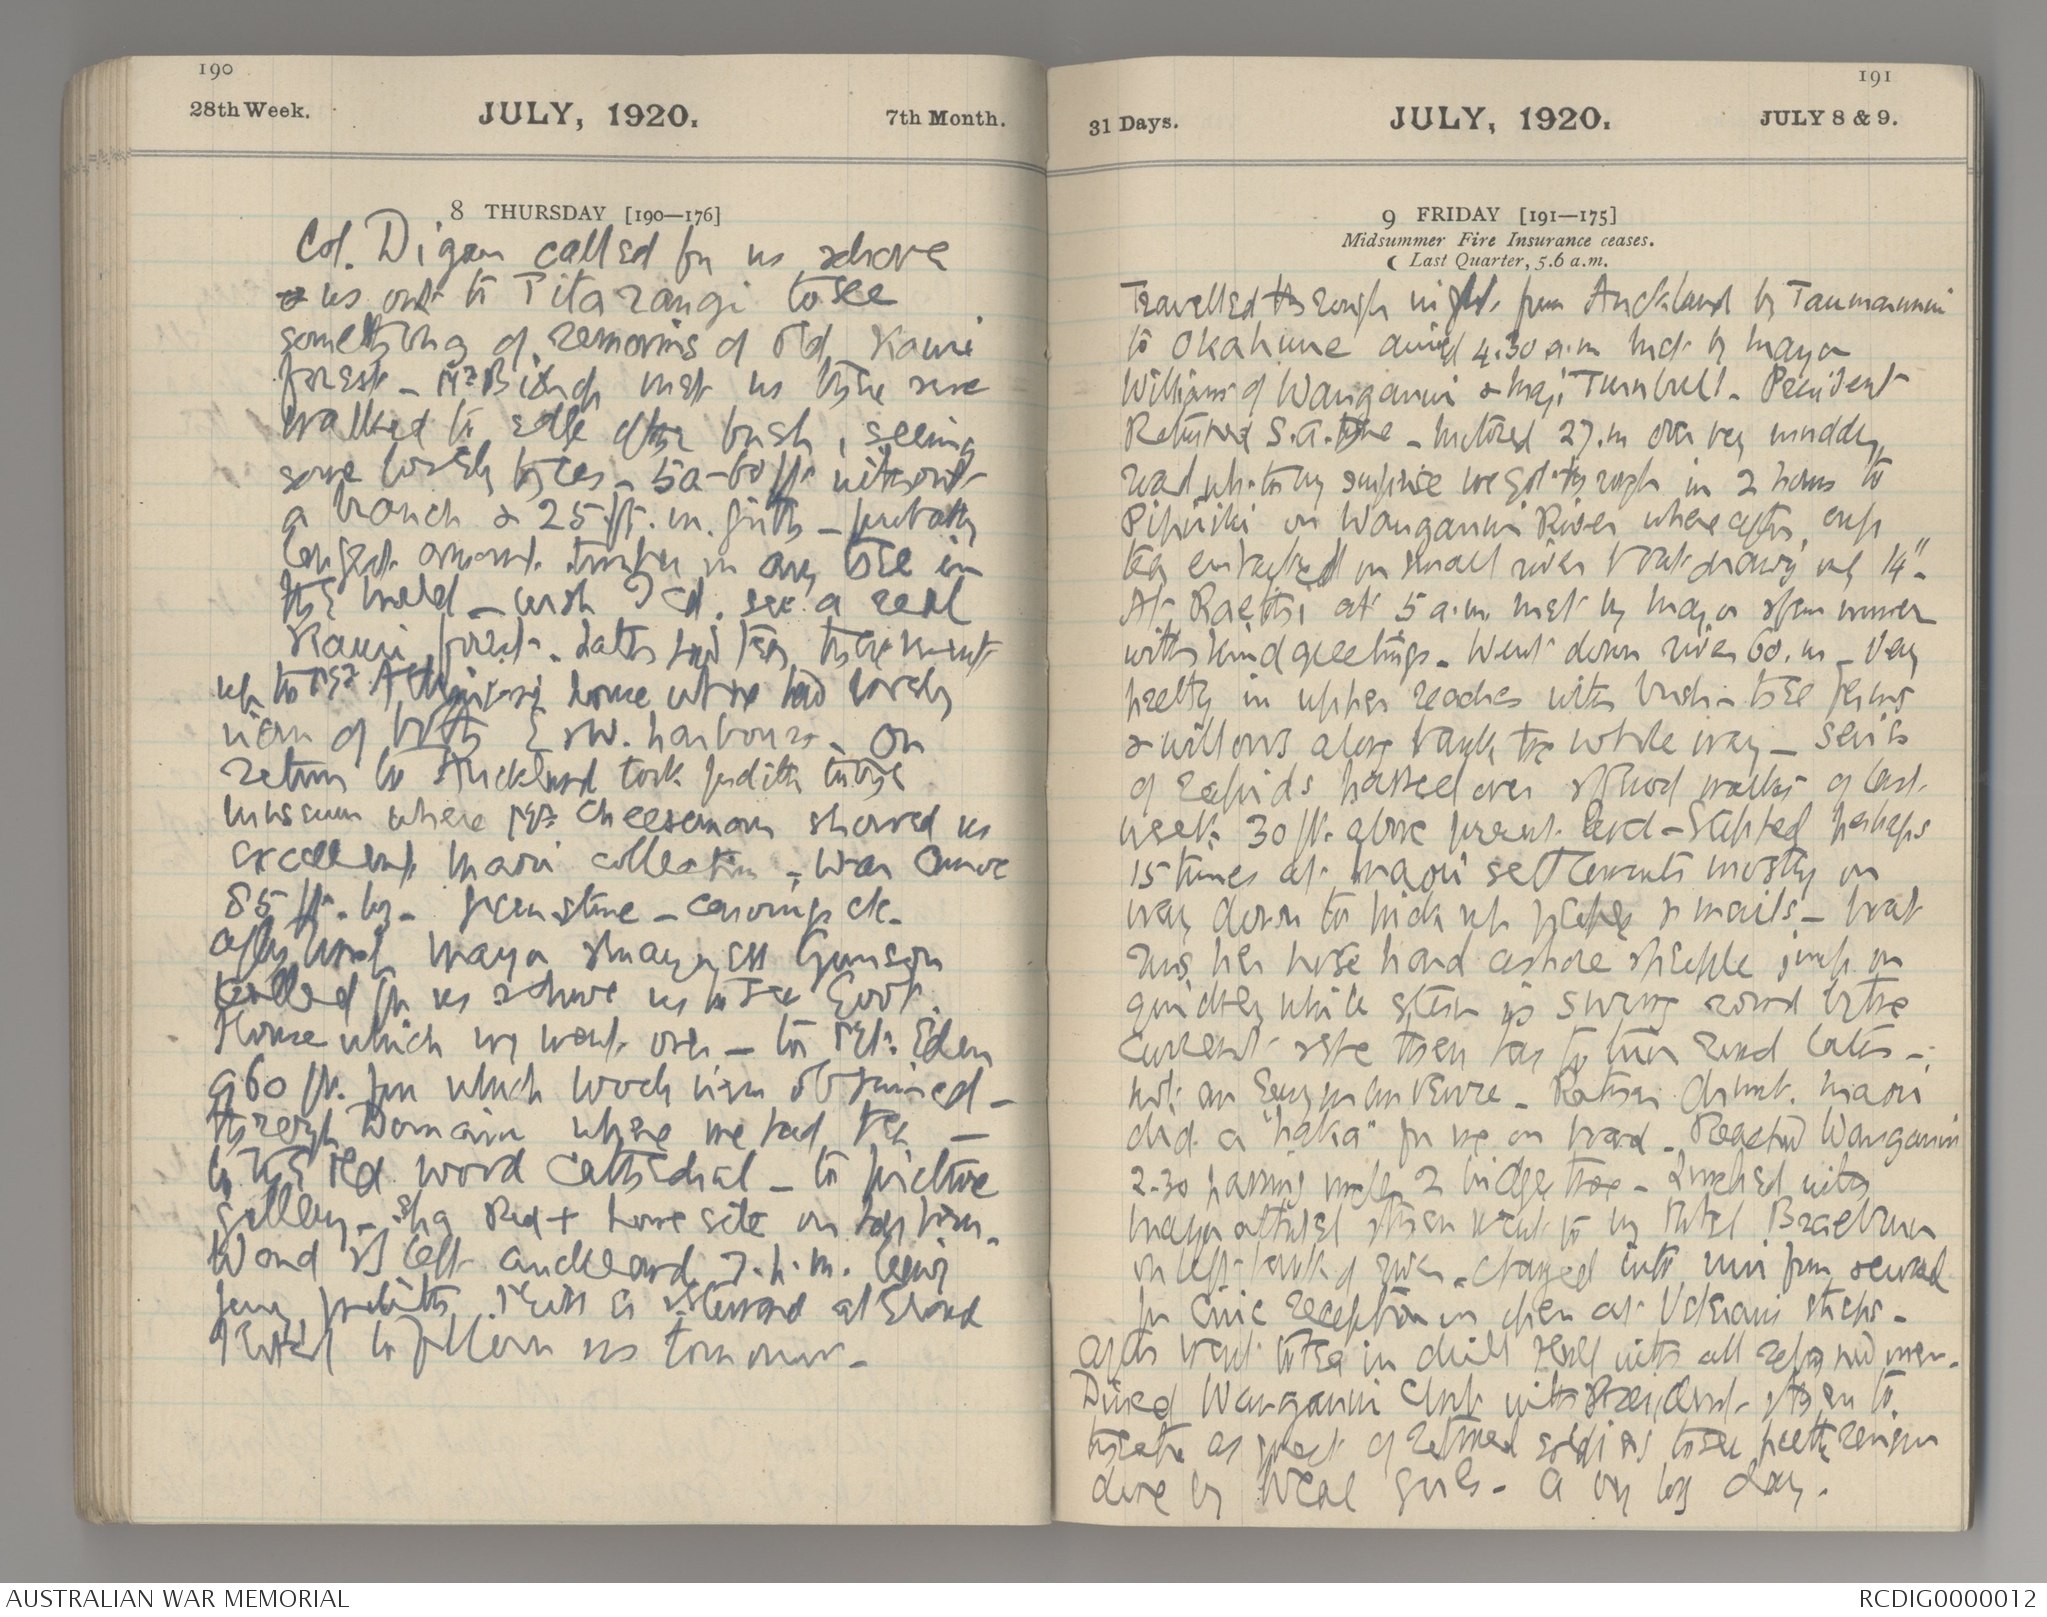 190
28th Week. JULY, 1920. 7th Month.
8 THURSDAY [190—176]
Col. Digan called for us & drove
us out to Titarangi to see
something of remains of old Kauri
forest – Mr met us there & we
walked to edge of the bush, seeing
some lovely trees – 50-60 ft without
a branch & 25 ft. in girth – probably
largest amount timber in any tree in
the world – wish I cd. see a real
Kauri forest. Later had tea there & went
up to Mr home where had lovely
view of both E & W. harbours – On
return to Auckland took Judith to the
museum where Mr Cheeseman showed us
excellent Maori collection – War Canoe
85 ft. long – green stone – carvings etc.
After lunch Mayor & Mayoress Gunson
called for us & drove us to see Govt.
House which we went over – to Mt. Eden
960 ft. from which lovely view obtained –
through Domain where we had tea –
to the old wood Cathedral – to picture
gallery – home site on
W and I left Auckland 7.p.m. leaving
Judith & steward at Grand
Hotel to follow us tomorrow –
191
31 Days. JULY, 1920. JULY 8 & 9.
9 FRIDAY [191—175]
Midsummer Fire Insurance ceases.
Last Quarter, 5.6 a.m.
Travelled through night from Auckland by Taumarunui
to Okahune arrived 4.30 a.m. met by Mayor
Williams of Wanganui & Maj: Turnbull – President
Returned S.A. – Motored 27.m over very muddy
road wh. to my surprise we got through in 2 hours to
Pipiriki on Wanganui River where after cup
tea embarked on small river boat drawing only 14" –
At Raetihi at 5 a.m. met by Mayor & few
with kind greetings. Went down river 60.m – Very
pretty in upper reaches with bush – tree ferns
& willows along bank the whole way – Series
of rapids passed over & flood marks of last
week 30 ft. above present level – Stopped perhaps
15 times at Maori settlements mostly on
way down to pick up people & mails – boat
runs her nose hard ashore & people jump on
quickly while stern is swung round by the
current & she then has to turn round later –
not an easy manoeuvre – Rather drunk Maori
did a "haka" for me on board – Reached Wanganui
2.30 passing under 2 bridges there – Lunched with
Mayor at hotel & then went to my hotel Braeburn
on left bank of river – changed into uniform
for Civic reception in open at Veterans steps –
After went to tea in drill Hall with all returned men –
Dined Wanganui Club with President & then to
theatre as guest of returned soldiers to see pretty
done by local girls – A very long day.
AUSTRALIAN WAR MEMORIAL
RCDIG0000012